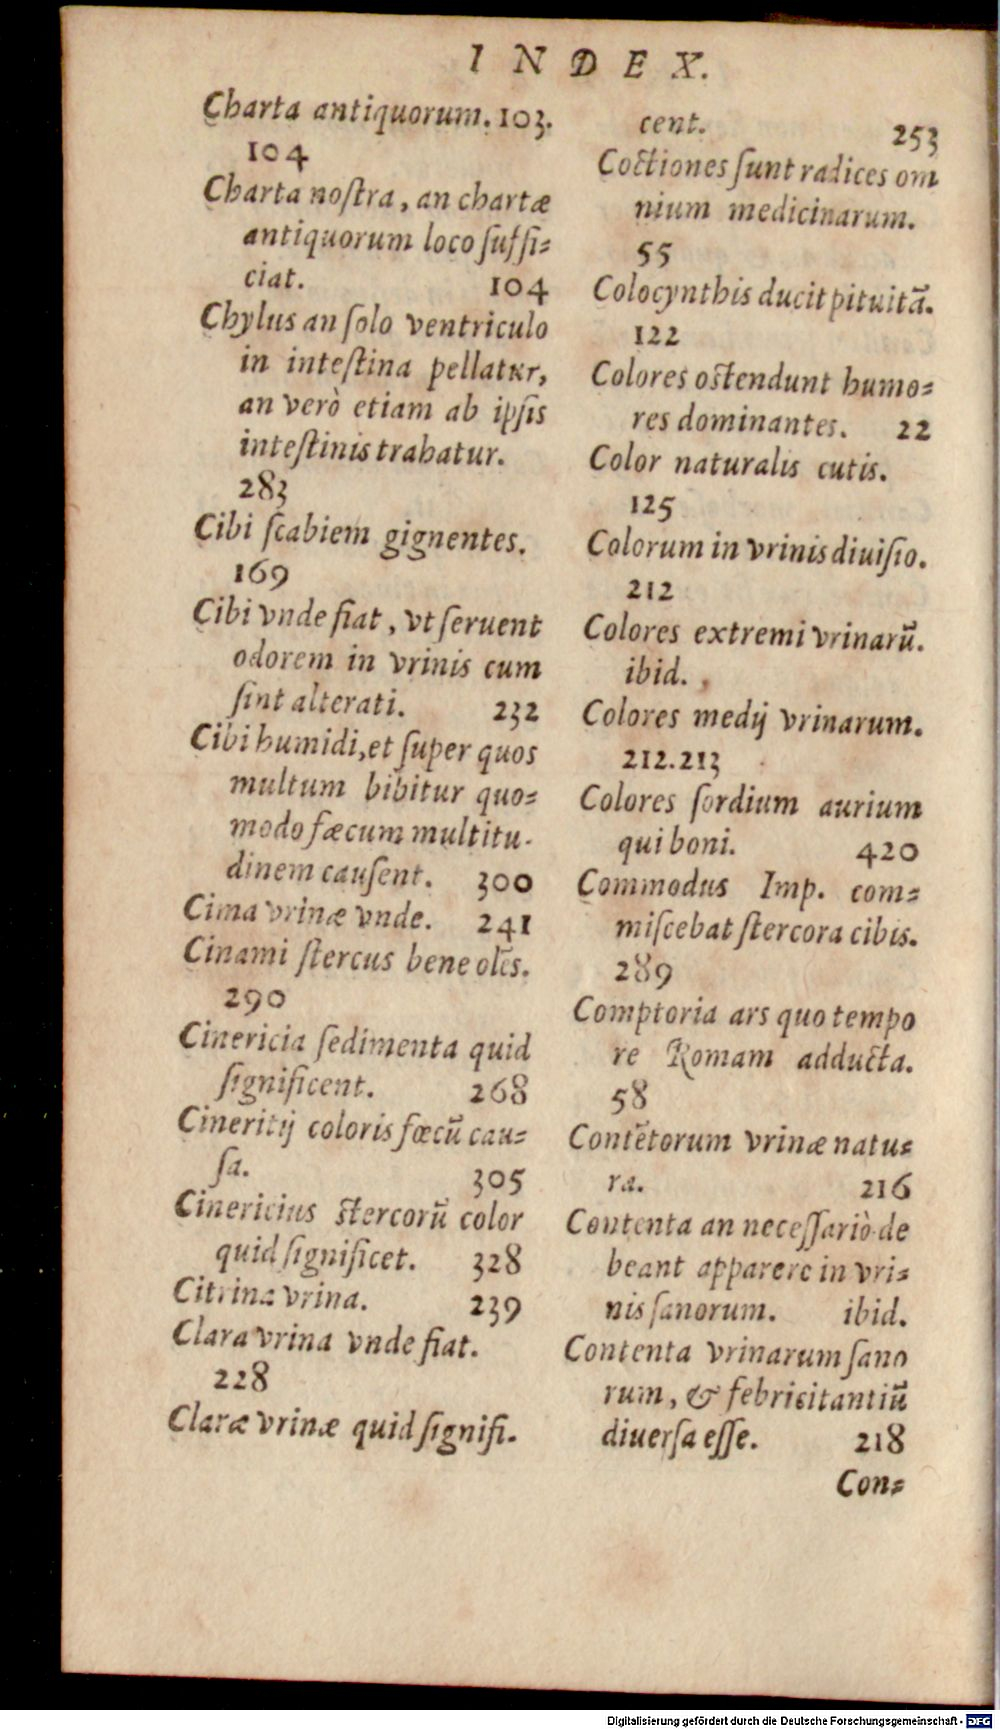 INDEX.
Charta antiquorum. 103.
104
Charta noſtra, an chartæ
antiquorum loco ſuffi⸗
ciat. 104
Chylus an ſolo ventriculo
in inteſtina pellatur,
an verò etiam ab ipſis
inteſtinis trahatur.
283
Cibi ſcabiem gignentes.
169
Cibi vnde fiat, vt ſeruent
odorem in vrinis cum
ſint alterati. 232
Cibi humidi, et ſuper quos
multum bibitur quo⸗
modo fæcum multitu-
dinem cauſent. 300
Cima vrinæ vnde. 241
Cinami ſtercus bene olẽs.
290
Cinericia ſedimenta quid
ſignificent. 268
Cineritij coloris fœcũ cau⸗
ſa. 305
Cinericius ſtercorũ color
quid ſignificet. 328
Citrina vrina. 239
Clara vrina vnde fiat.
228
Claræ vrinæ quid ſignifi-
cent. 253
Coctiones ſunt radices om
nium medicinarum.
55
Colocynthis ducit pituitã.
122
Colores oſtendunt humo⸗
res dominantes. 22
Color naturalis cutis.
125
Colorum in vrinis diuiſio.
212
Colores extremi vrinarũ.
ibid.
Colores medij vrinarum.
212.213
Colores ſordium aurium
qui boni. 420
Commodus Imp. com⸗
miſcebat ſtercora cibis.
289
Comptoria ars quo tempo
re Romam adducta.
58
Contẽtorum vrinæ natu⸗
ra. 216
Contenta an neceſſariò de
beant apparere in vri⸗
nis ſanorum. ibid.
Contenta vrinarum ſano
rum, & febricitantiũ
diuerſa eſſe. 218
Con⸗
Digitalisierung gefördert durch die Deutsche Forschungsgemeinschaft - DFG